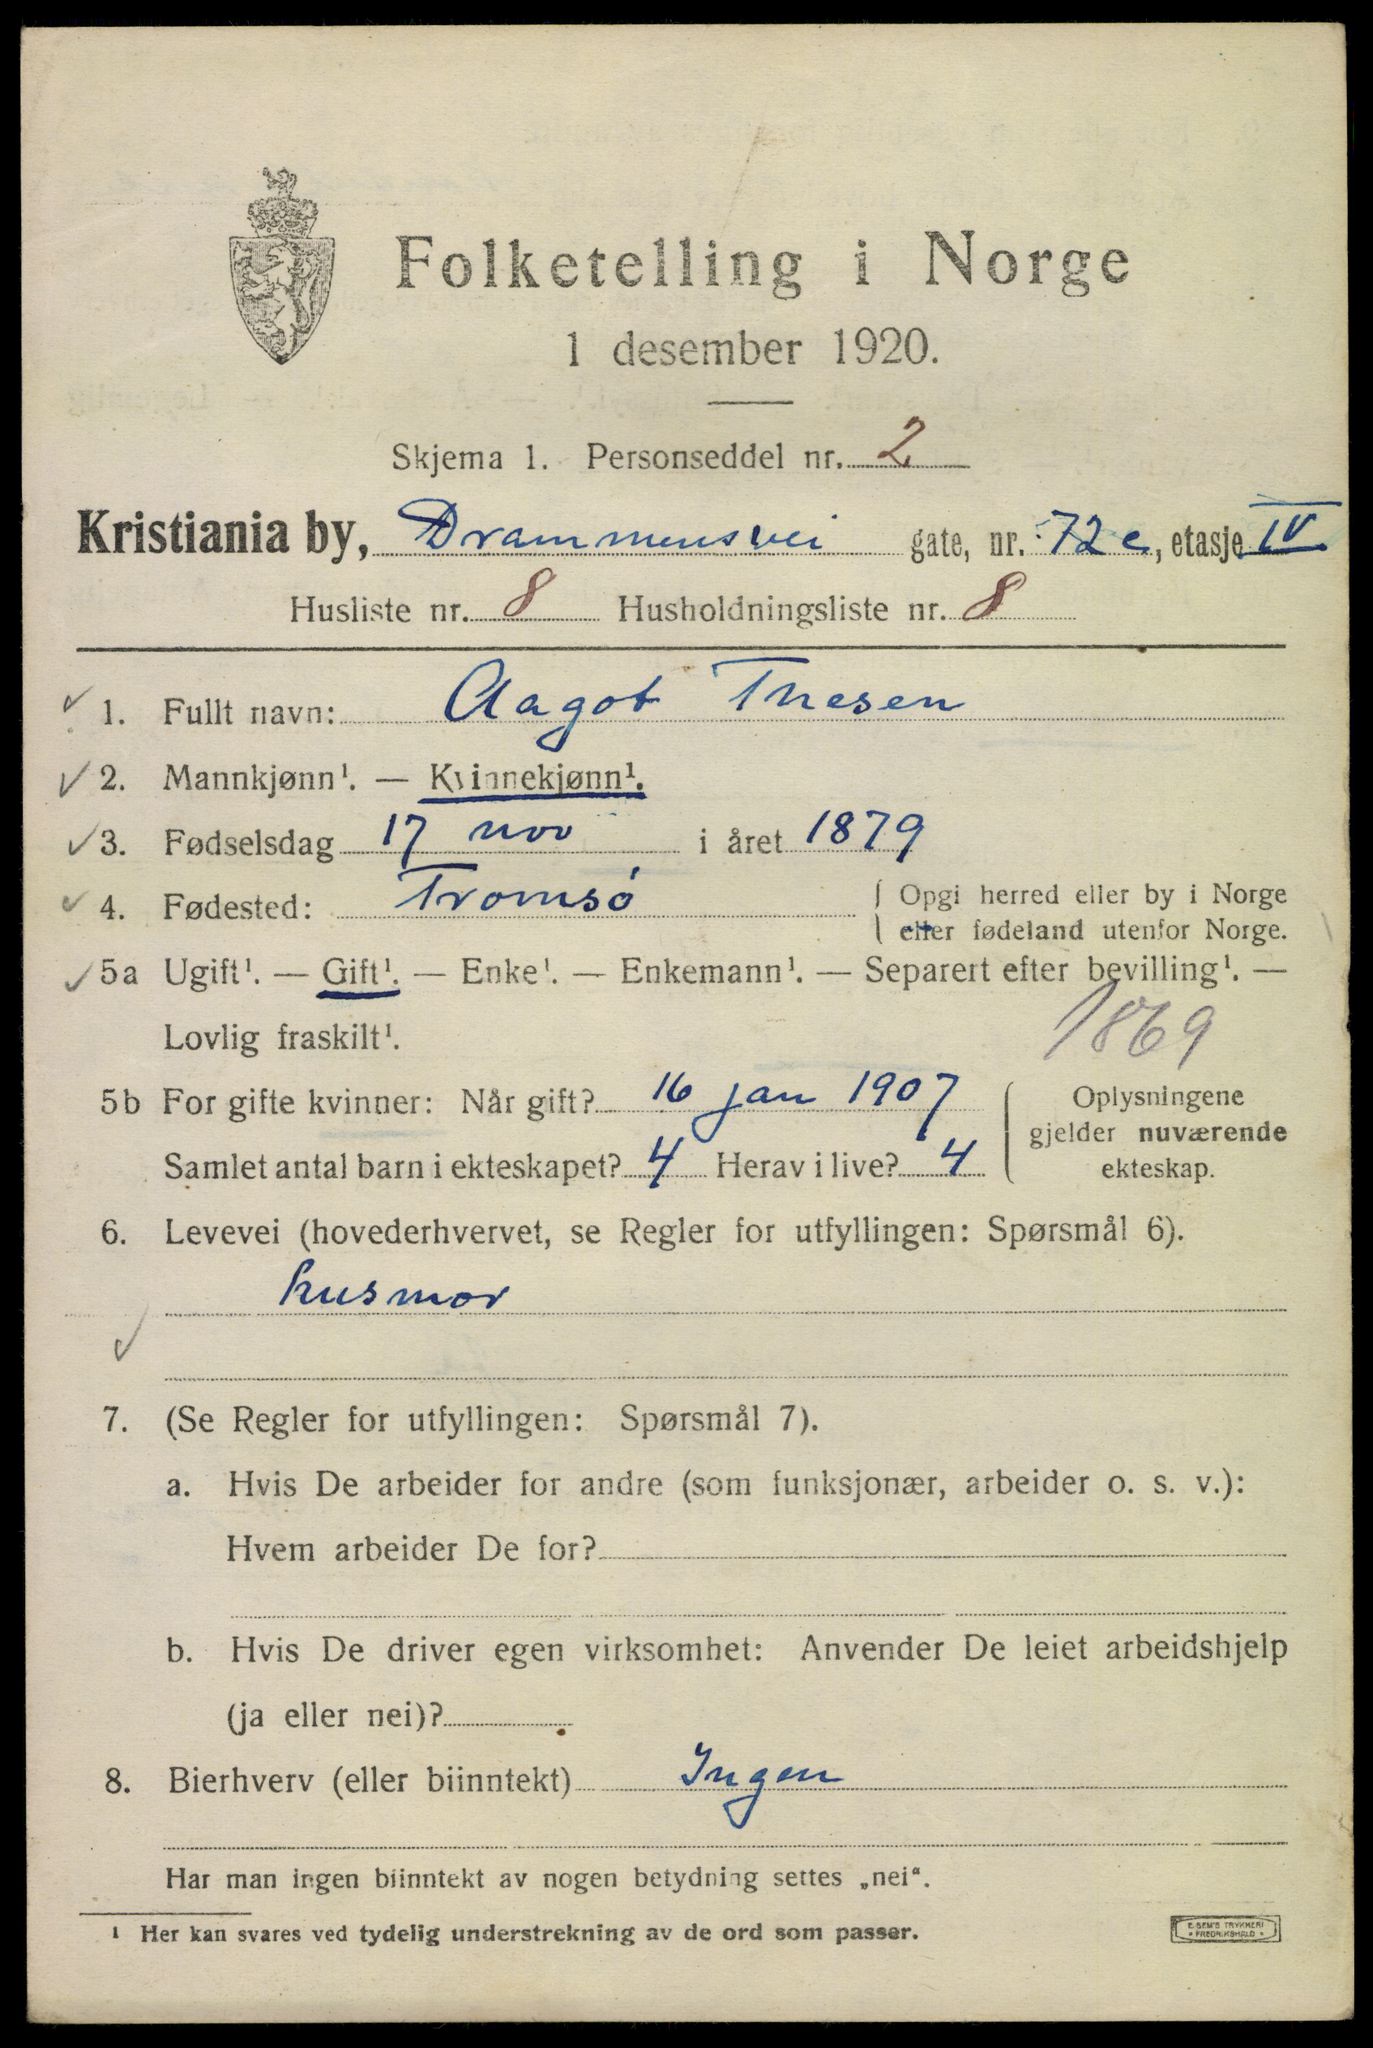 Folketelling i Norge
1 desember 1920.
Skjema 1. Personseddel nr. 2
Kristiania by, Drammensvei gate, nr. 72 c, etasje IV
Husliste nr. 8 Husholdningsliste nr. 8
1. Fullt navn: Aagot Thesen
2. Mannkjønn¹. — Kvinnekjønn¹.
3. Fødselsdag 17 nov i året 1879
4. Fødested: Tromsø { Opgi herred eller by i Norge
eller fødeland utenfor Norge.
5a Ugift¹. — Gift¹. — Enke¹. — Enkemann¹. — Separert efter bevilling¹. —
Lovlig fraskilt¹. 1869
5b For gifte kvinner: Når gift? 16 jan 1907 { Oplysningene
gjelder nuværende
Samlet antal barn i ekteskapet? 4 Herav i live? 4 ekteskap.
6. Levevei (hovederhvervet, se Regler for utfyllingen: Spørsmål 6).
husmor
7. (Se Regler for utfyllingen: Spørsmål 7).
a. Hvis De arbeider for andre (som funksjonær, arbeider o. s. v.):
Hvem arbeider De for?
b. Hvis De driver egen virksomhet: Anvender De leiet arbeidshjelp
(ja eller nei)?
8. Bierhverv (eller biinntekt) Ingen
Har man ingen biinntekt av nogen betydning settes „nei“.
¹ Her kan svares ved tydelig understrekning av de ord som passer.
E. SEM'S TRYKKERI
FREDRIKSHALD